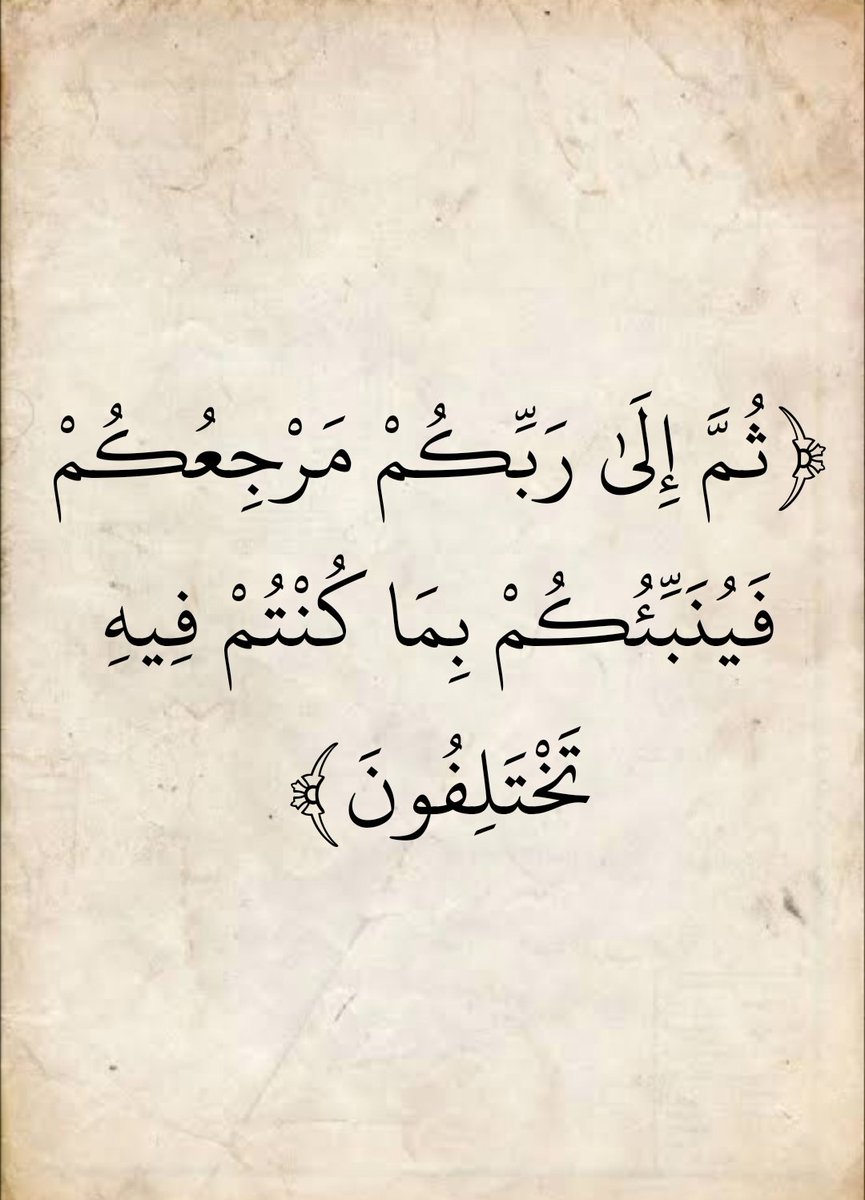 ﴿ثُمَّ إِلَىٰ رَبِّكُمْ مَرْجِعُكُمْ
فَيُنَبِّئُكُمْ بِمَا كُنْتُمْ فِيهِ
تَخْتَلِفُونَ﴾